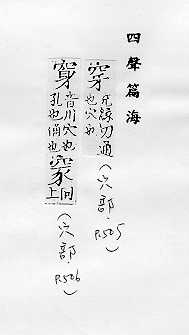 四聲篇海
穿 充緣切通
也穴也
(穴部.
P.505)
音川穴也
孔也俑也
同上
(穴部.
P.506)